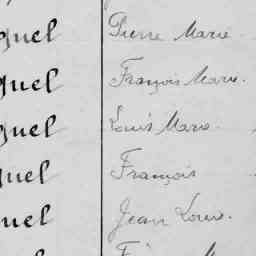 guel Pierre Marie
guel François Marie.
guel Louis Marie
guel François
guel Jean Louis.